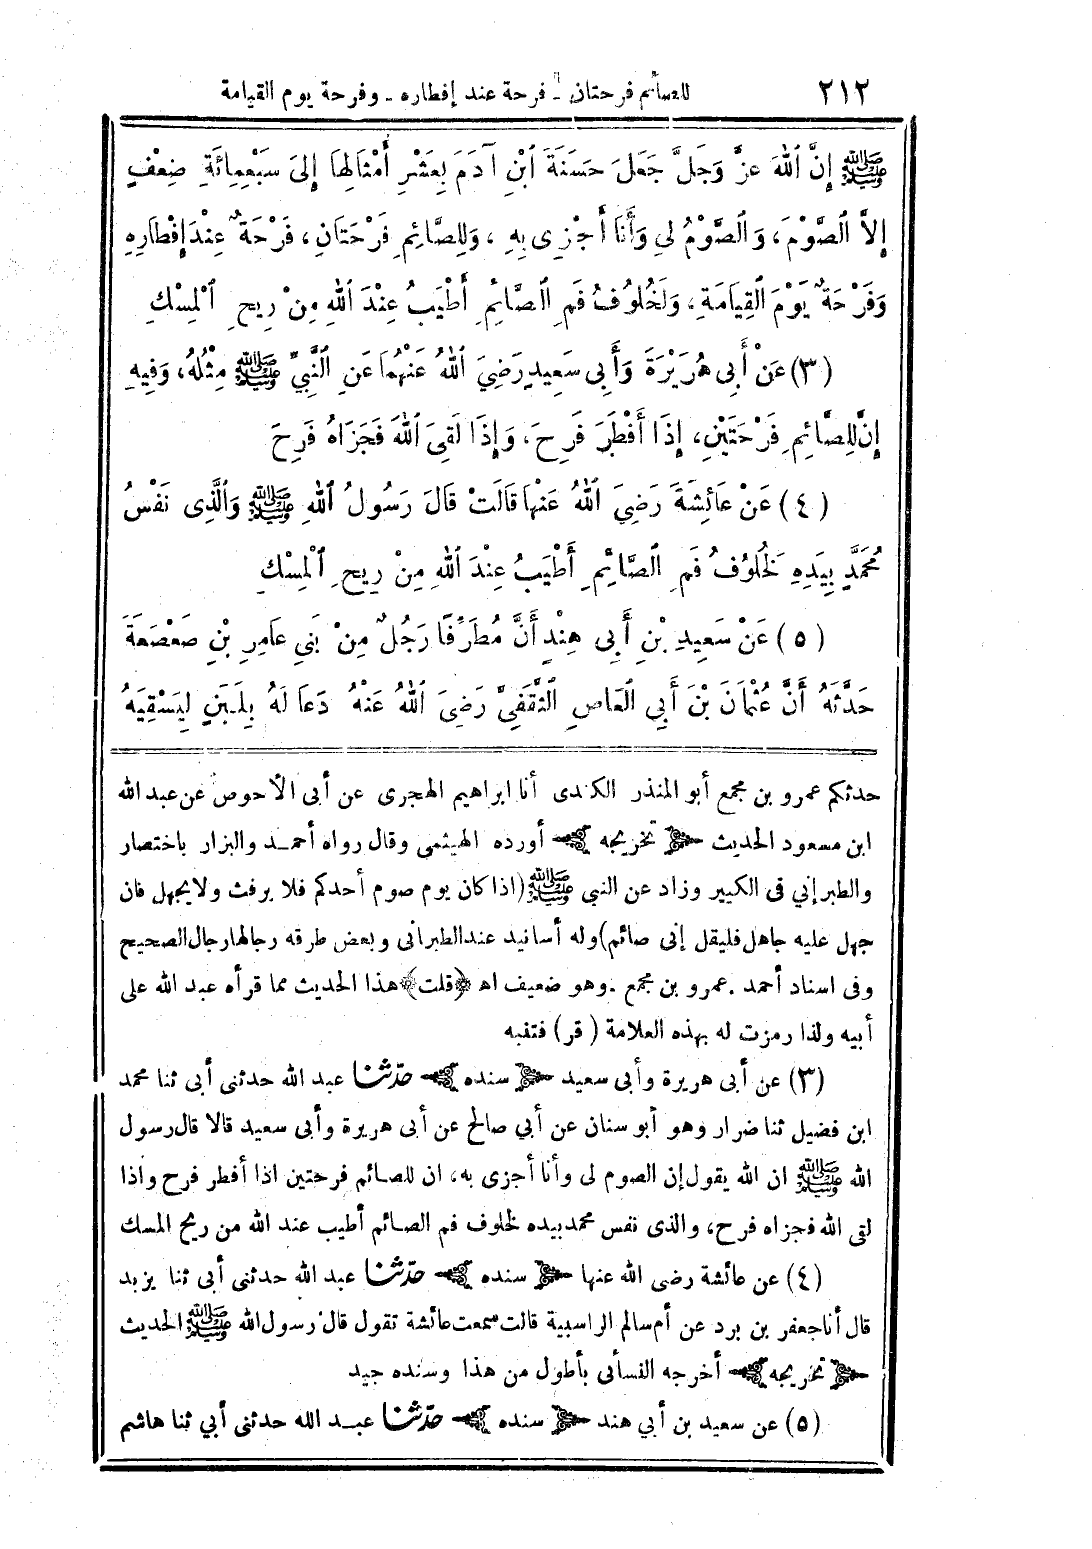 ٢١٢
للصائم فرحتان - فرحة عند إفطاره - وفرحة يوم القيامة
ﷺ إِنَّ اللهَ عَزَّ وَجَلَّ جَعَلَ حَسَنَةَ ابْنِ آدَمَ بِعَشْرِ أَمْثَالِهَا إِلَى سَبْعِمِائَةِ ضِعْفٍ
إِلاَّ الصَّوْمَ، وَالصَّوْمُ لِي وَأَنَا أَجْزِي بِهِ، وَلِلصَّائِمِ فَرْحَتَانِ، فَرْحَةٌ عِنْدَ إِفْطَارِهِ
وَفَرْحَةٌ يَوْمَ الْقِيَامَةِ، وَلَخُلُوفُ فَمِ الصَّائِمِ أَطْيَبُ عِنْدَ اللهِ مِنْ رِيحِ الْمِسْكِ
(٣) عَنْ أَبِي هُرَيْرَةَ وَأَبِي سَعِيدٍ رَضِيَ اللهُ عَنْهُمَا عَنِ النَّبِيِّ ﷺ مِثْلُهُ، وَفِيهِ
إِنَّ لِلصَّائِمِ فَرْحَتَيْنِ، إِذَا أَفْطَرَ فَرِحَ، وَإِذَا لَقِيَ اللهَ فَجَزَاهُ فَرِحَ
(٤) عَنْ عَائِشَةَ رَضِيَ اللهُ عَنْهَا قَالَتْ قَالَ رَسُولُ اللهِ ﷺ وَالَّذِي نَفْسُ
مُحَمَّدٍ بِيَدِهِ لَخُلُوفُ فَمِ الصَّائِمِ أَطْيَبُ عِنْدَ اللهِ مِنْ رِيحِ الْمِسْكِ
(٥) عَنْ سَعِيدِ بْنِ أَبِي هِنْدٍ أَنَّ مُطَرِّفًا رَجُلٌ مِنْ بَنِي عَامِرِ بْنِ صَعْصَعَةَ
حَدَّثَهُ أَنَّ عُثْمَانَ بْنَ أَبِي الْعَاصِ الثَّقَفِيَّ رَضِيَ اللهُ عَنْهُ دَعَا لَهُ بِلَبَنٍ لِيَسْقِيَهُ
حدثكم عمرو بن مجمع أبو المنذر الكندى أنا ابراهيم الهجرى عن أبى الأحوص عن عبد الله
ابن مسعود الحديث ﴿ تخريجه ﴾ أورده الهيثمى وقال رواه أحمد والبزار باختصار
والطبرانى فى الكبير وزاد عن النبى ﷺ (اذا كان يوم صوم أحدكم فلا يرفث ولا يجهل فان
جهل عليه جاهل فليقل إنى صائم) وله أسانيد عند الطبرانى وبعض طرقه رجالها رجال الصحيح
وفى اسناد أحمد .عمرو بن مجمع .وهو ضعيف اهـ ﴿قلت﴾ هذا الحديث مما قرأه عبد الله على
أبيه ولذا رمزت له بهذه العلامة ( قر ) فتنبه
(٣) عن أبى هريرة وأبى سعيد ﴿ سنده ﴾ حدّثنا عبد الله حدثنى أبى ثنا محمد
ابن فضيل ثنا ضرار وهو أبو سنان عن أبي صالح عن أبى هريرة وأبى سعيد قالا قال رسول
الله ﷺ ان الله يقول إن الصوم لى وأنا أجزى به، ان للصائم فرحتين اذا أفطر فرح واذا
لقى الله فجزاه فرح، والذى نفس محمد بيده لخلوف فم الصائم أطيب عند الله من ريح المسك
(٤) عن عائشة رضى الله عنها ﴿ سنده ﴾ حدّثنا عبد الله حدثنى أبى ثنا يزيد
قال أنا جعفر بن برد عن أم سالم الراسبية قالت سمعت عائشة تقول قال رسول الله ﷺ الحديث
﴿ تخريجه ﴾ أخرجه النسائى بأطول من هذا وسنده جيد
(٥) عن سعيد بن أبي هند ﴿ سنده ﴾ حدّثنا عبد الله حدثنى أبي ثنا هاشم